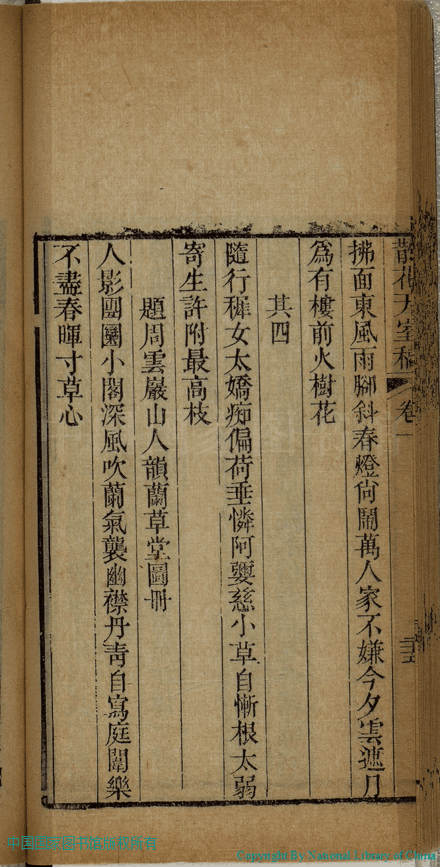 散花天室稿 卷一 二十五
拂面東風雨腳斜春燈尙鬧萬人家不嫌今夕雲遮月
爲有樓前火樹花
其四
隨行穉女太嬌痴偏荷垂憐阿㜑慈小草自慚根太弱
寄生許附最高枝
題周雲巖山人韻蘭草堂圖冊
人影團圞小閣深風吹蘭氣襲幽襟丹靑自寫庭闈樂
不盡春暉寸草心
中国国家图书馆版权所有
Copyright By National Library of China